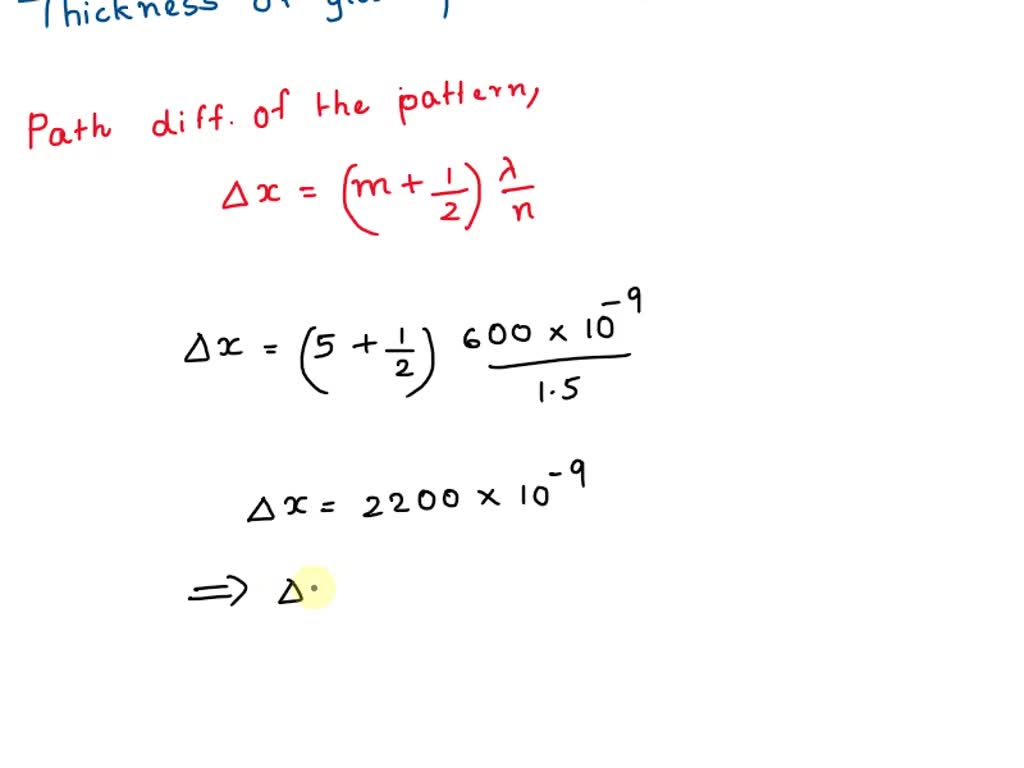 Thickness of
Path diff. of the pattern,
Δx = (m + 1/2) λ/n
Δx = (5 + 1/2) 600 × 10⁻⁹/1.5
Δx = 2200 × 10⁻⁹
⇒ Δ